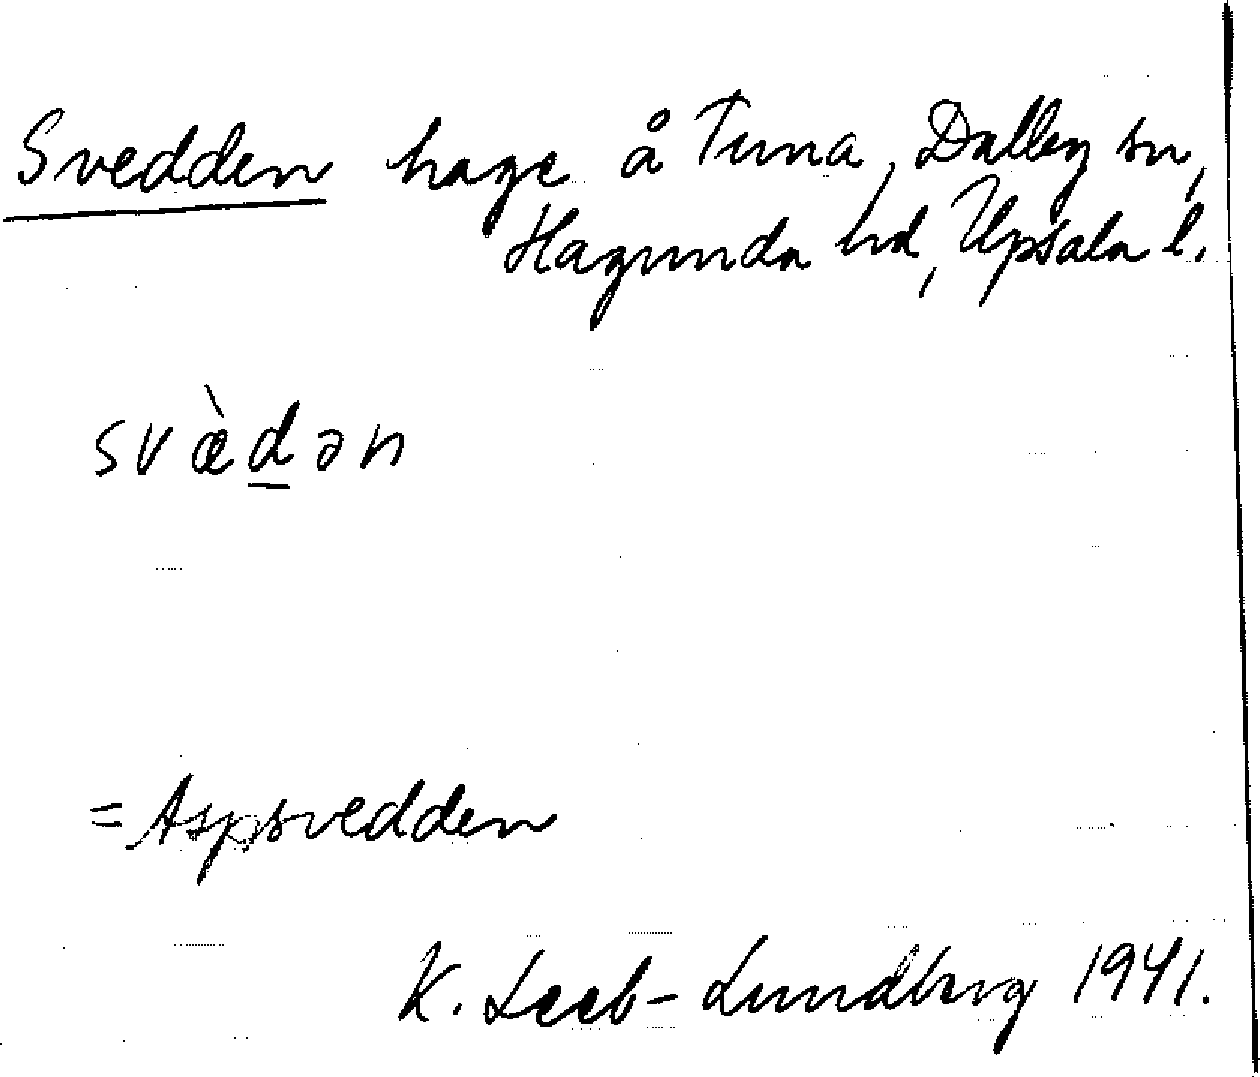 Svedden hage å Tuna, Dalby sn,
Hagunda hd, Upsala l.
svæ̀d̲ən
= Aspsvedden
K. Leeb-Lundberg 1941.